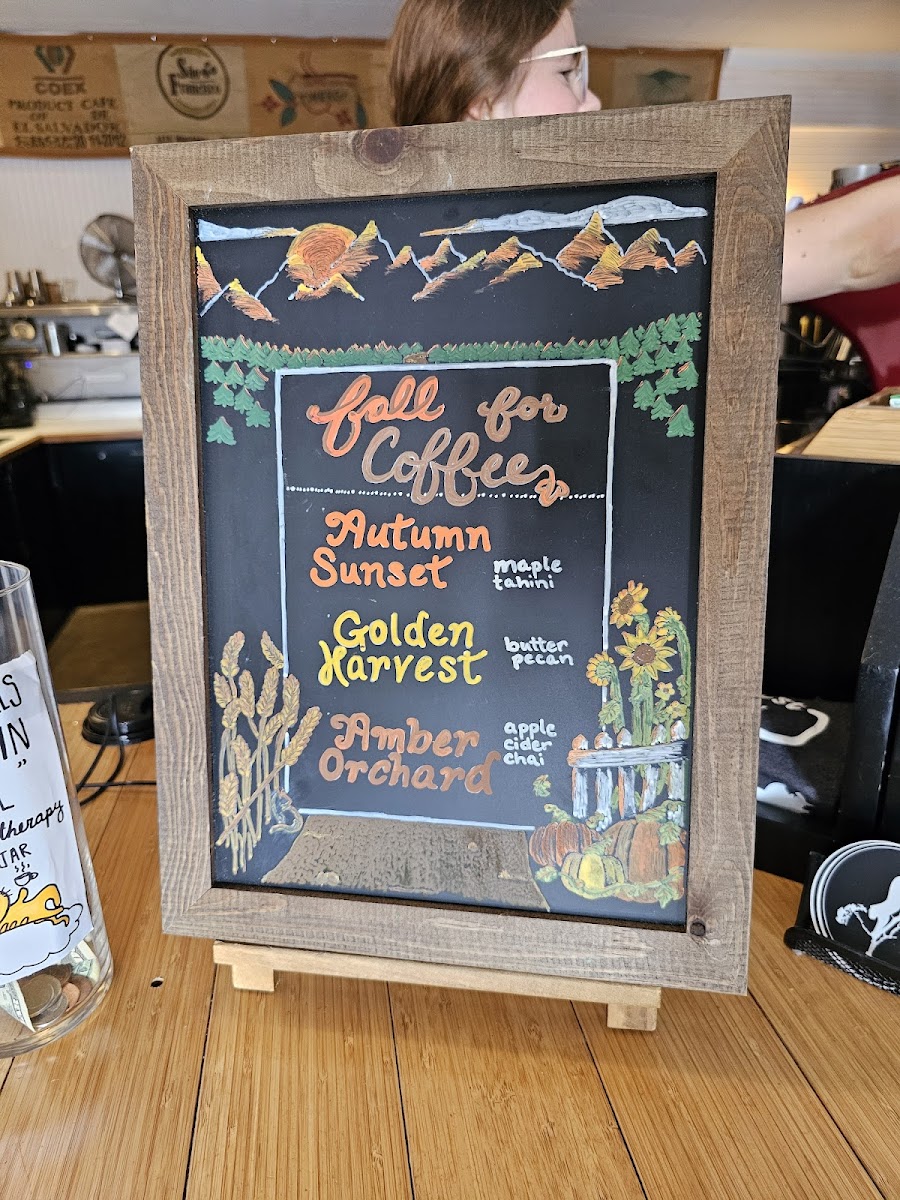 COEX
PRODUCT CAFE
OF DE
EL SALVADOR
San
Francisco
fall for
Coffee
Autumn
Sunset
maple
tahini
Golden
Harvest
butter
pecan
Amber
Orchard
apple
cider
chai
IN
therapy
JAR